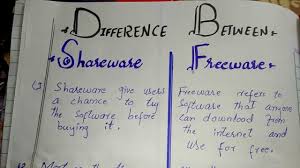 Difference Between
Shareware
Freeware
(1) Shareware give users
a chance to try
the software before
buying it.
Freeware refers to
software that anyone
can download from
the internet and
use for free.